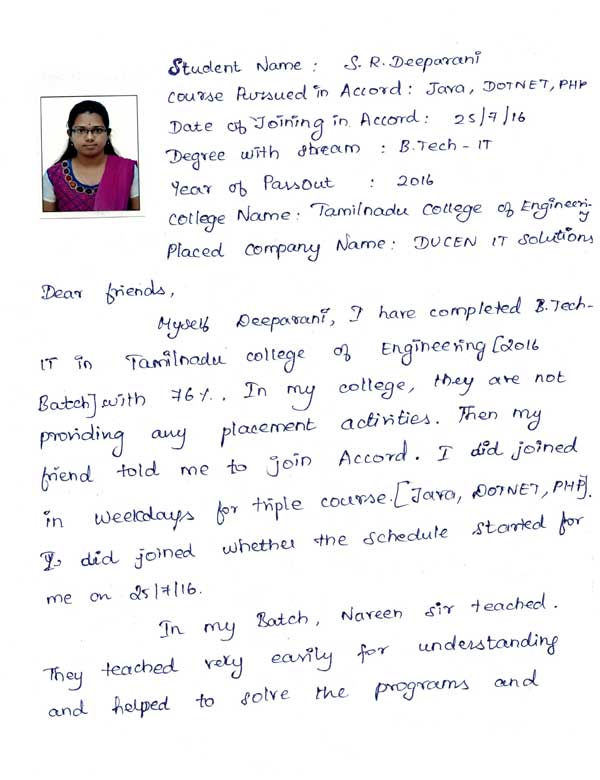 Student Name : S. R. Deeparani
Course Pursued in Accord : Java, DOTNET, PHP
Date of Joining in Accord : 25/7/16
Degree with stream : B.Tech - IT
Year of Passout : 2016
College Name : Tamilnadu College of Engineering
Placed Company Name : DUCEN IT Solutions
Dear friends,
Myself Deeparani, I have completed B.Tech-
IT in Tamilnadu college of Engineering [2016
Batch] with 76%. In my college, they are not
providing any placement activities. Then my
friend told me to join Accord. I did joined
in weekdays for triple course. [Java, DOTNET, PHP].
I did joined whether the schedule started for
me on 25/7/16.
In my Batch, Naveen sir teached.
They teached very easily for understanding
and helped to solve the programs and